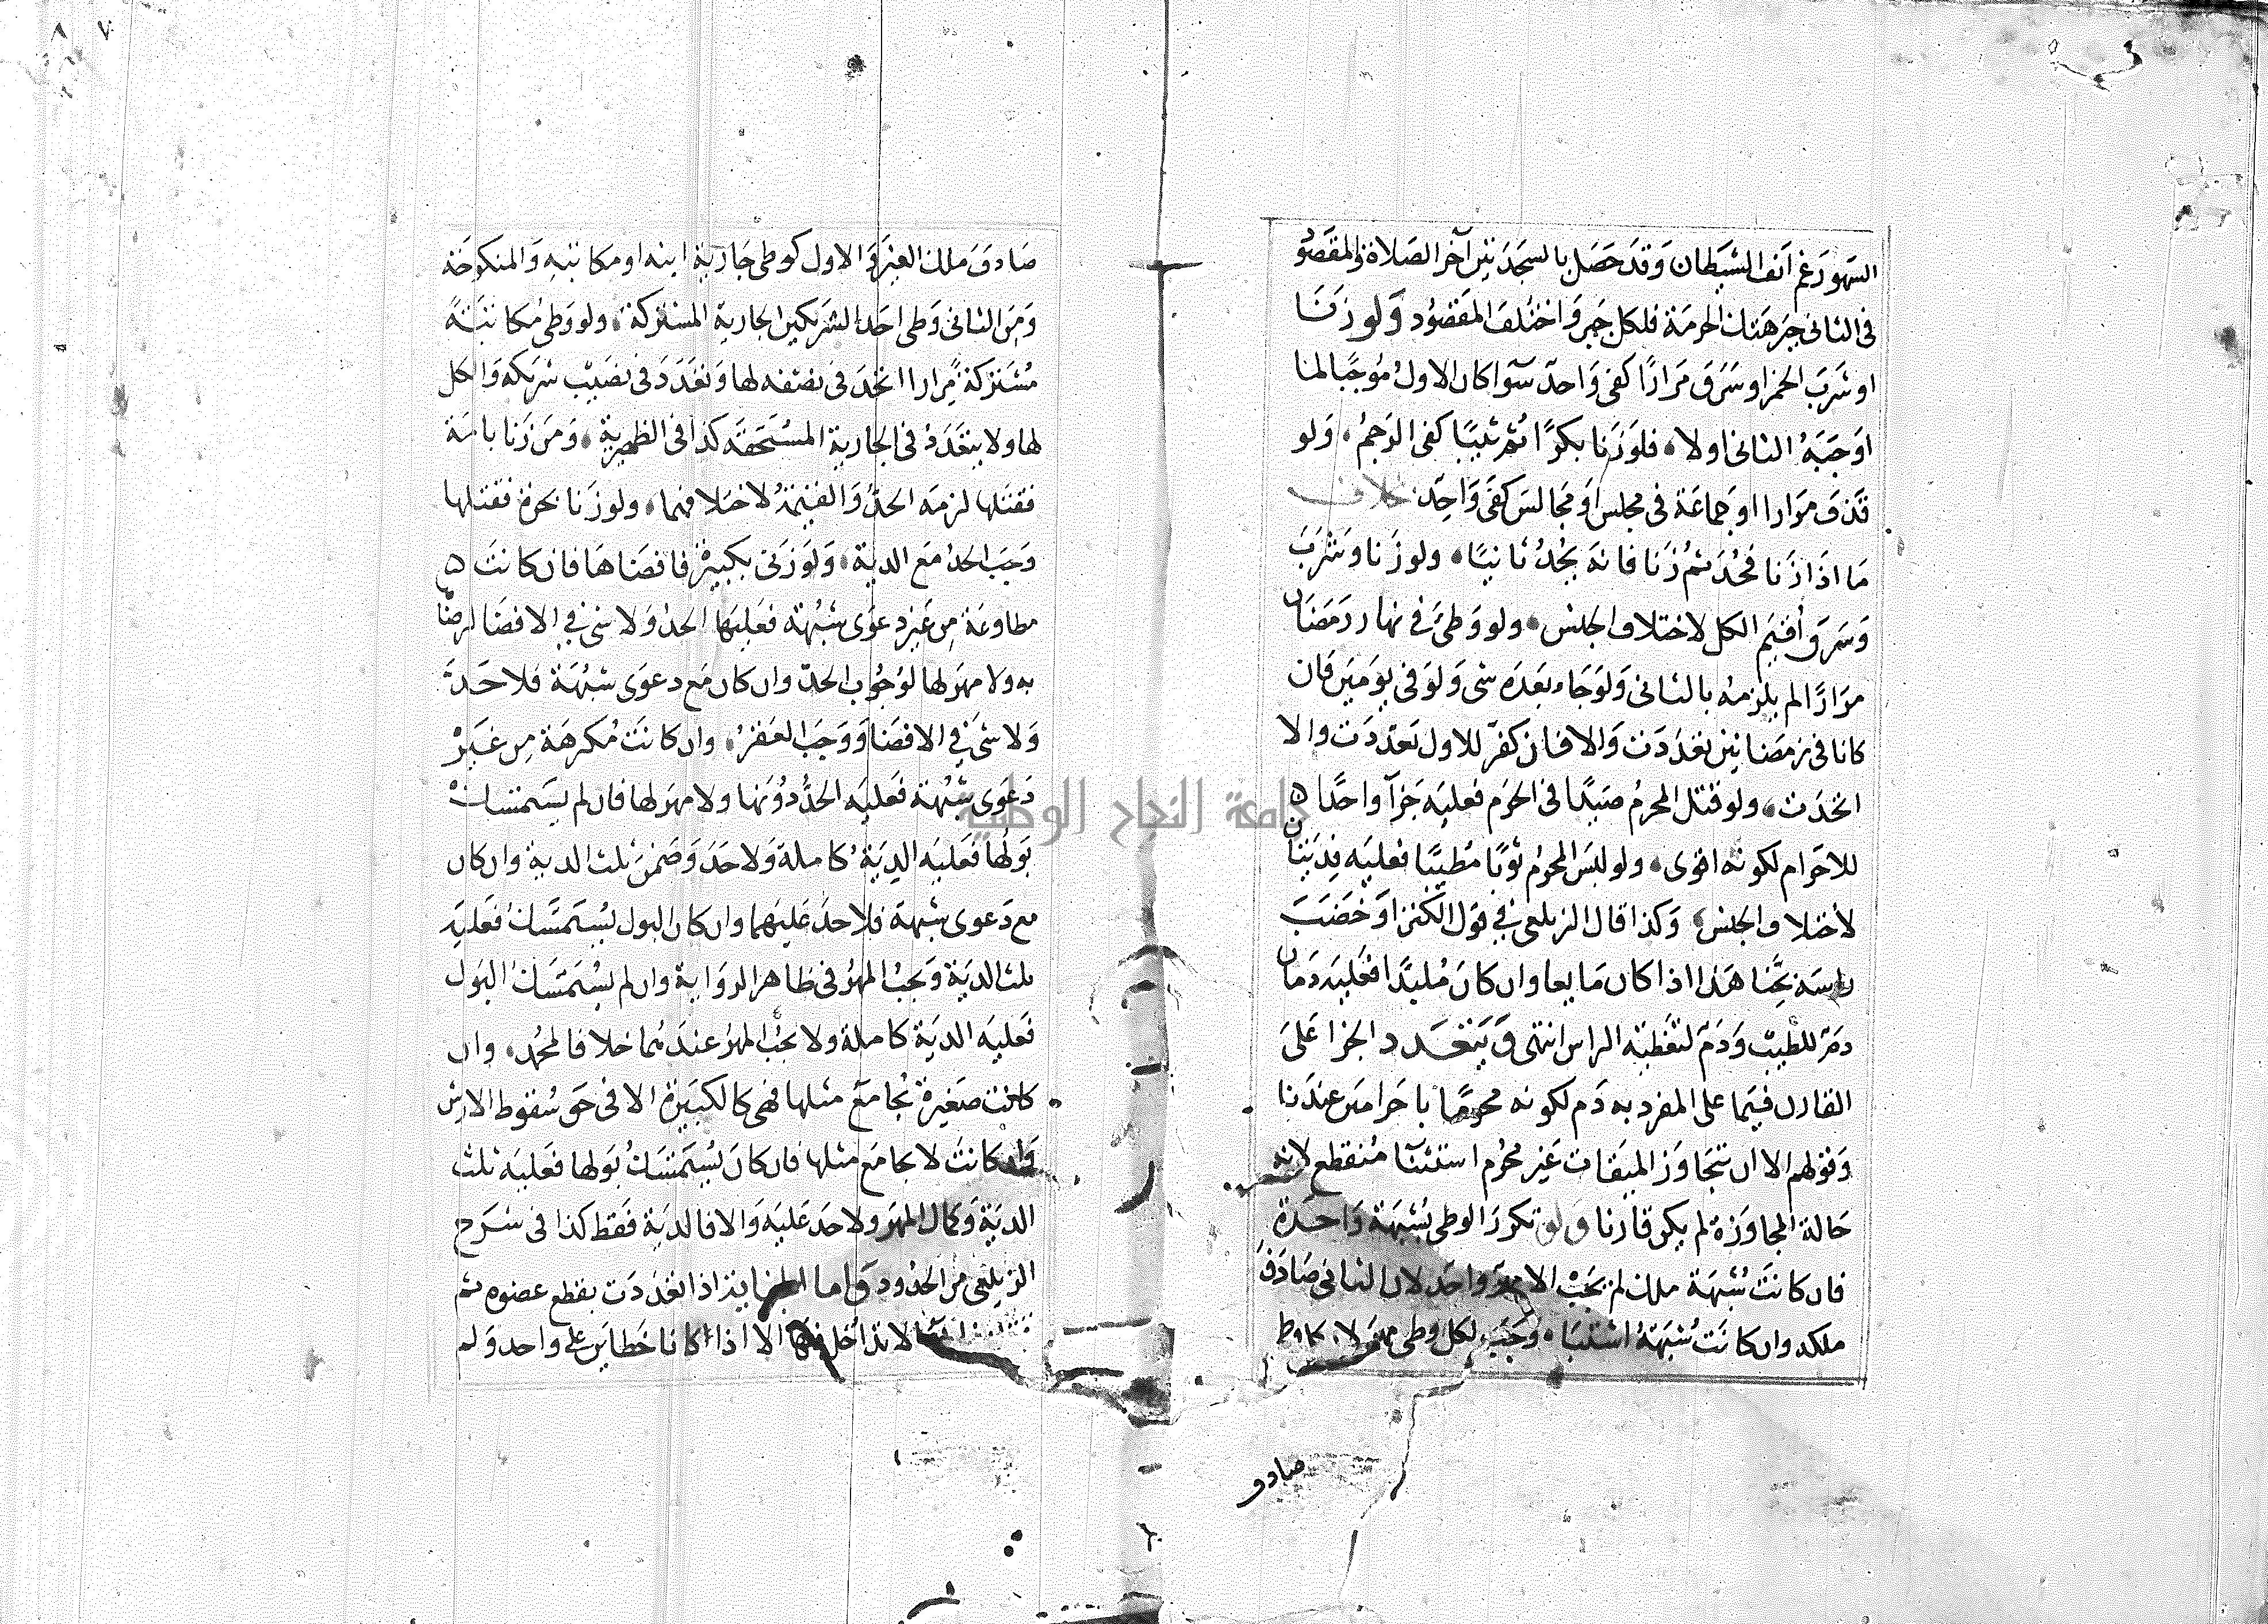 السهو رغم انف الشيطان وقد حصل بالسجدتين آخر الصلاة والمقصود
فى الثانى جبر هتك الحرمة فلكل جبر واختلف المقصود ولو زنا
او شرب الخمر او سرق مرارا كفى واحد سوا كان الاول موجبا لما
اوجبه الثانى اولا فلو زنا بكرا ثم ثيبا كفى الرجم ولو
قذف مرارا او جماعة فى مجلس او مجالس كفى واحد خلاف
ما اذا زنا فحد ثم زنا فانه يحد ثانيا ولو زنا وشرب
وسرق أقيم الكل لاختلاف الجنس ولو وطئ فى نهار رمضان
مرارا لم يلزمه بالثانى ولو جاء بعده شى ولو فى يومين فان
كانا فى رمضانين تعددت والا فان كفر للاول تعددت والا
اتحدت ولو قتل المحرم صيدا فى الحرم فعليه جزآ واحدا ٥
للاحرام لكونه اقوى ولو لبس المحرم ثوبا مطيبا فعليه فديتان
لاختلاف الجنس وكذا قال الزيلعى في قول الكنز او خضب
راسه بحنا هذا اذا كان مايعا وان كان ملبدا فعليه دمان
دم للطيب ودم لتغطية الراس انتهى ويتعدد الجزا على
القارن فيما على المفرد به دم لكونه محرما باحرامين عندنا
وقولهم الا ان يتجاوز الميقات غير محرم استثنآ منقطع لانه
حالة المجاوزة لم يكن قارنا ولو تكرر الوطى بشبهة واحدة
فان كانت شبهة ملك لم يجب الا مهر واحد لان الثانى صادف
ملكه وان كانت شبهة اشتباه وجب لكل وطى مهر لان كل وطى
صادف
صادف ملك الغير والاول كوطى جارية ابنه او مكاتبه والمنكوحة
ومن الثانى وطى احد الشريكين الجارية المشتركة ولو وطى مكاتبة
مشتركة مرارا اتحد فى نصفه لها وتعدد فى نصيب شريكه والكل
لها ولا يتعدد فى الجارية المستحقة كذا فى الظهيرية ومن زنا بامة
فقتلها لزمه الحد والقيمة لاختلافهما ولو زنا بحرة فقتلها
وجب الحد مع الدية ولو زنى بكبيرة فافضاها فان كانت ٥
مطاوعة من غير دعوى شبهة فعليهما الحد ولا شى في الافضا لرضا
به ولا مهر لها لوجوب الحد وان كان مع دعوى شبهة فلا حد
ولا شئ في الافضا ووجب العقر وان كانت مكرهة من غير
دعوى شبهة فعليه الحد دونها ولا مهر لها فان لم يستمسك
بولها فعليه الدية كاملة ولا حد وضمن ثلث الدية وان كان
مع دعوى شبهة فلا حد عليهما وان كان البول يستمسك فعليه
ثلث الدية ويجب المهر فى ظاهر الرواية وان لم يستمسك البول
فعليه الدية كاملة ولا يجب المهر عندهما خلافا لمحمد وان
كانت صغيرة يجامع مثلها فهى كالكبيرة الا فى حق سقوط الارش
وان كانت لا يجامع مثلها فان كان يستمسك بولها فعليه ثلث
الدية وكمال المهر ولا حد عليه والا فالدية فقط كذا فى شرح
الزيلعى من الحدود واما الجناية اذا تعددت بقطع عضوه ثم
لا تداخل فيها الا اذا كانا خطاين على واحد ولم
جامعة النجاح الوطنية